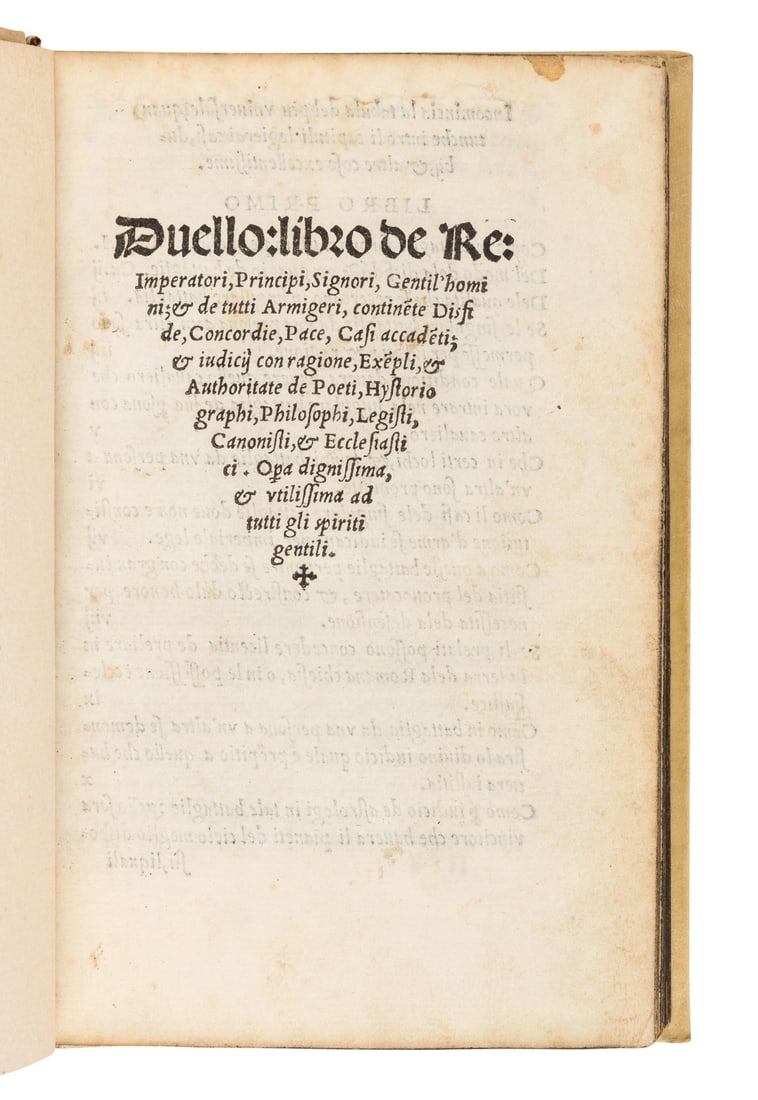 Duello:libro de Re:
Imperatori,Principi,Signori, Gentil'homi
ni;& de tutti Armigeri, continẽte Disfi
de,Concordie,Pace, Casi accadẽti;
& iudicij con ragione,Exẽpli,&
Authoritate de Poeti,Hystorio
graphi,Philosophi,Legisti,
Canonisti,& Ecclesiasti
ci. Oꝑa dignissima,
& vtilissima ad
tutti gli spiriti
gentili.